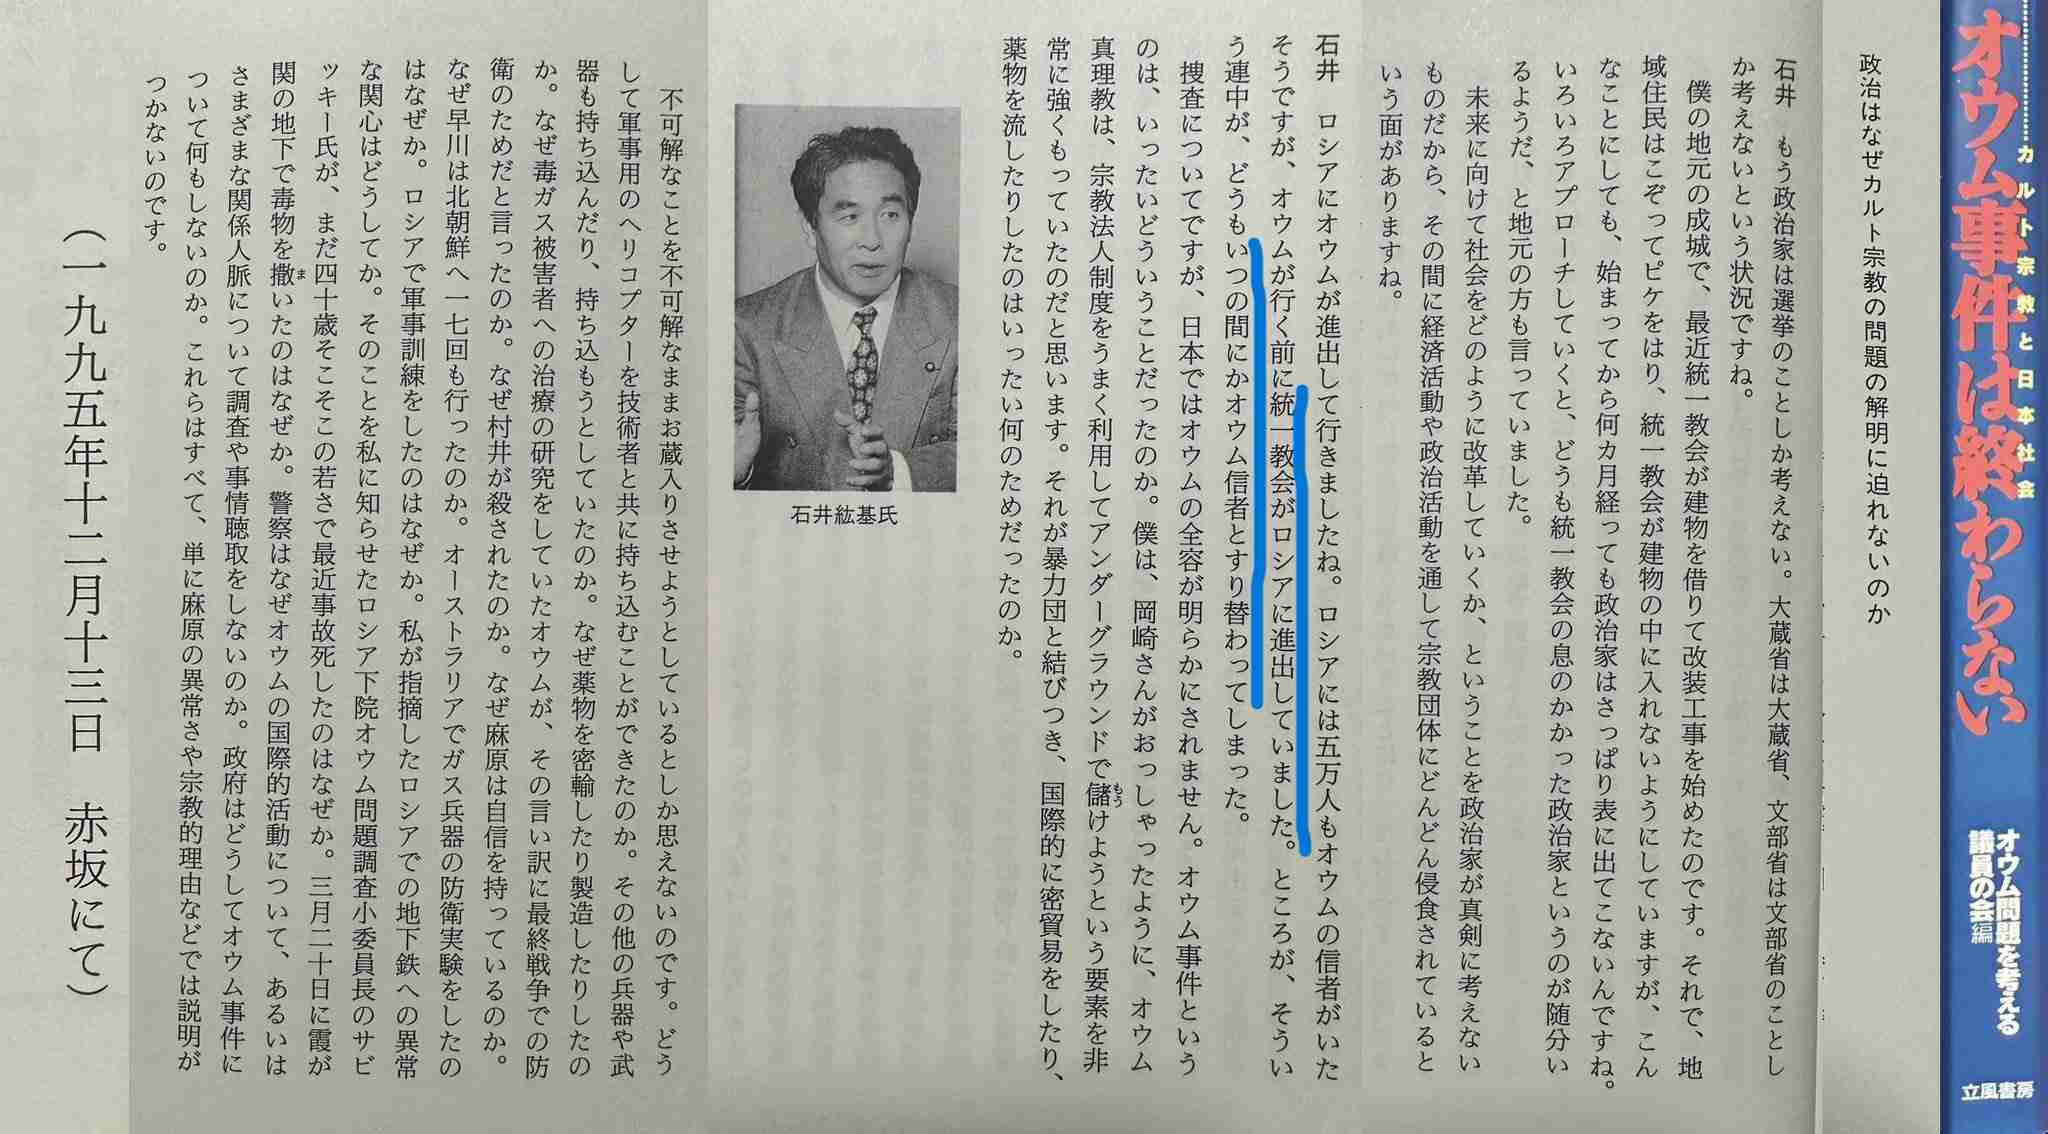 オウム事件は終わらない
カルト宗教と日本社会
オウム問題を考える
議員の会編
立風書房
政治はなぜカルト宗教の問題の解明に迫れないのか
石井　もう政治家は選挙のことしか考えない。大蔵省は大蔵省、文部省は文部省のことし
か考えないという状況ですね。
僕の地元の成城で、最近統一教会が建物を借りて改装工事を始めたのです。それで、地
域住民はこぞってピケをはり、統一教会が建物の中に入れないようにしていますが、こん
なことにしても、始まってから何カ月経っても政治家はさっぱり表に出てこないんですね。
いろいろアプローチしていくと、どうも統一教会の息のかかった政治家というのが随分い
るようだ、と地元の方も言っていました。
未来に向けて社会をどのように改革していくか、ということを政治家が真剣に考えない
ものだから、その間に経済活動や政治活動を通して宗教団体にどんどん侵食されていると
いう面がありますね。
石井　ロシアにオウムが進出して行きましたね。ロシアには五万人もオウムの信者がいた
そうですが、オウムが行く前に統一教会がロシアに進出していました。ところが、そうい
う連中が、どうもいつの間にかオウム信者とすり替わってしまった。
捜査についてですが、日本ではオウムの全容が明らかにされません。オウム事件という
のは、いったいどういうことだったのか。僕は、岡崎さんがおっしゃったように、オウム
真理教は、宗教法人制度をうまく利用してアンダーグラウンドで儲けようという要素を非
常に強くもっていたのだと思います。それが暴力団と結びつき、国際的に密貿易をしたり、
薬物を流したりしたのはいったい何のためだったのか。
石井紘基氏
不可解なことを不可解なままお蔵入りさせようとしているとしか思えないのです。どう
して軍事用のヘリコプターを技術者と共に持ち込むことができたのか。その他の兵器や武
器も持ち込んだり、持ち込もうとしていたのか。なぜ薬物を密輸したり製造したりしたの
か。なぜ毒ガス被害者への治療の研究をしていたオウムが、その言い訳に最終戦争での防
衛のためだと言ったのか。なぜ村井が殺されたのか。なぜ麻原は自信を持っているのか。
なぜ早川は北朝鮮へ一七回も行ったのか。オーストラリアでガス兵器の防衛実験をしたの
はなぜか。ロシアで軍事訓練をしたのはなぜか。私が指摘したロシアでの地下鉄への異常
な関心はどうしてか。そのことを私に知らせたロシア下院オウム問題調査小委員長のサビ
ッキー氏が、まだ四十歳そこそこの若さで最近事故死したのはなぜか。三月二十日に霞が
関の地下で毒物を撒いたのはなぜか。警察はなぜオウムの国際的活動について、あるいは
さまざまな関係人脈について調査や事情聴取をしないのか。政府はどうしてオウム事件に
ついて何もしないのか。これらはすべて、単に麻原の異常さや宗教的理由などでは説明が
つかないのです。
（一九九五年十二月十三日　赤坂にて）